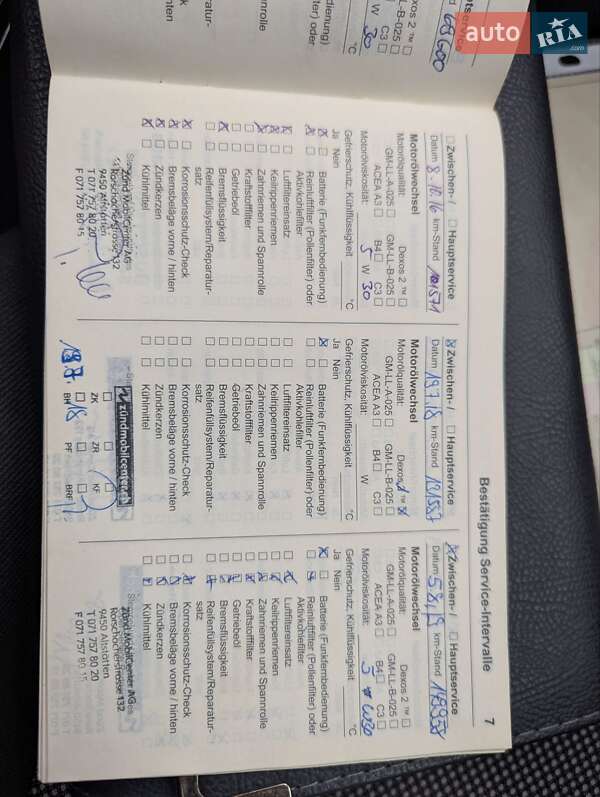 auto RIA .com
Bestätigung Service-Intervalle
7
W 30
C3
GM-LL-B-025
Dexos 2 ™
68600
Zwischen- / Hauptservice
Datum 8.10.16 km-Stand 101571
Motorölwechsel
Motorölqualität: Dexos 2 ™
GM-LL-A-025 GM-LL-B-025
ACEA A3 B4 C3
Motorölviskosität: 5 W 30
Gefrierschutz, Kühlflüssigkeit °C
Ja Nein
Batterie (Funkfernbedienung)
Reinluftfilter (Pollenfilter) oder
Aktivkohlefilter
Luftfiltereinsatz
Keilrippenriemen
Zahnriemen und Spannrolle
Kraftstofffilter
Getriebeöl
Bremsflüssigkeit
Reifenfüllsystem/Reparatur-
satz
Korrosionsschutz-Check
Bremsbeläge vorne / hinten
Zündkerzen
Kühlmittel
Zünd MobilCenter AG
Rorschacherstrasse 132
9450 Altstätten
T 071 757 80 20
F 071 757 80 15
Zwischen- / Hauptservice
Datum 19.7.18 km-Stand
Motorölwechsel
Motorölqualität: Dexos
GM-LL-A-025 GM-LL-B-025
ACEA A3 B4 C3
Motorölviskosität: W
Gefrierschutz, Kühlflüssigkeit °C
Ja Nein
Batterie (Funkfernbedienung)
Reinluftfilter (Pollenfilter) oder
Aktivkohlefilter
Luftfiltereinsatz
Keilrippenriemen
Zahnriemen und Spannrolle
Kraftstofffilter
Getriebeöl
Bremsflüssigkeit
Reifenfüllsystem/Reparatur-
satz
Korrosionsschutz-Check
Bremsbeläge vorne / hinten
Zündkerzen
Kühlmittel
zündmobilcenter.ch
ZK ZR KF
BM PF BRF
Zwischen- / Hauptservice
Datum 5.8.19 km-Stand
Motorölwechsel
Motorölqualität: Dexos 2 ™
GM-LL-A-025 GM-LL-B-025
ACEA A3 B4 C3
Motorölviskosität: 5 W30
Gefrierschutz, Kühlflüssigkeit °C
Ja Nein
Batterie (Funkfernbedienung)
Reinluftfilter (Pollenfilter) oder
Aktivkohlefilter
Luftfiltereinsatz
Keilrippenriemen
Zahnriemen und Spannrolle
Kraftstofffilter
Getriebeöl
Bremsflüssigkeit
Reifenfüllsystem/Reparatur-
satz
Korrosionsschutz-Check
Bremsbeläge vorne / hinten
Zündkerzen
Kühlmittel
Zünd MobilCenter AG
Rorschacherstrasse 132
9450 Altstätten
T 071 757 80 20
F 071 757 80 15